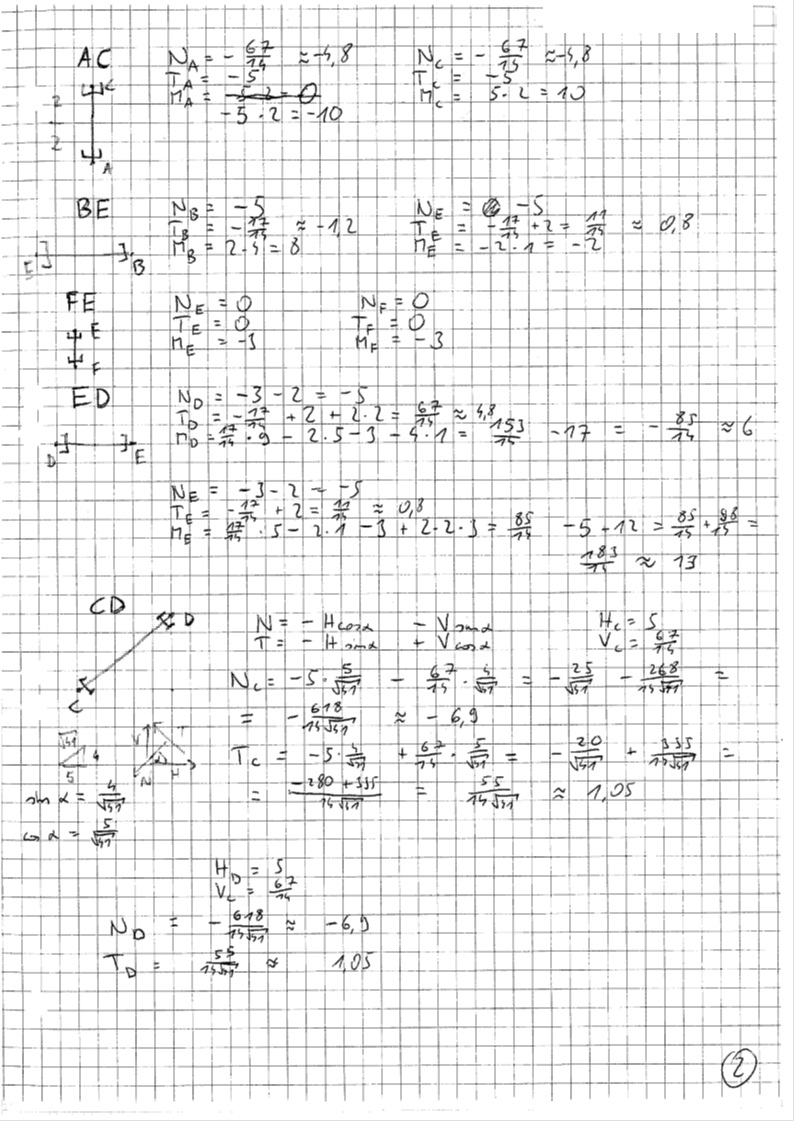 AC
N_A = - 67/14 ≈ -4,8
T_A = -5
M_A = -5·2 = 0
-5·2 = -10
N_C = - 67/14 ≈ -4,8
T_C = -5
M_C = 5·2 = 10
2
2
C
A
BE
N_B = -5
T_B = - 17/14 ≈ -1,2
M_B = 2·4 = 8
N_E = -5
T_E = - 17/14 + 2 = 11/14 ≈ 0,8
M_E = -2·1 = -2
E B
FE
N_E = 0
T_E = 0
M_E = -3
N_F = 0
T_F = 0
M_F = -3
E
F
ED
N_D = -3 - 2 = -5
T_D = - 17/14 + 2 + 2·2 = 67/14 ≈ 4,8
M_D = 17/14 · 9 - 2·5 - 3 - 4·1 = 153/14 - 17 = - 85/14 ≈ 6
D E
N_E = -3 - 2 = -5
T_E = - 17/14 + 2 = 11/14 ≈ 0,8
M_E = 17/14 · 5 - 2·1 - 3 + 2·2·3 = 85/14 - 5 + 12 = 85/14 + 98/14 =
183/14 ≈ 13
CD
D
C
N = - H cos α - V sin α
T = - H sin α + V cos α
H_C = 5
V_C = 67/14
N_C = -5 · 5/√41 - 67/14 · 4/√41 = - 25/√41 - 268/14√41 =
= - 618/14√41 ≈ -6,9
T_C = -5 · 4/√41 + 67/14 · 5/√41 = - 20/√41 + 335/14√41 =
= -280 + 335/14√41 = 55/14√41 ≈ 1,05
√41
4
5
V T
N H
sin α = 4/√41
cos α = 5/√41
H_D = 5
V_C = 67/14
N_D = - 618/14√41 ≈ -6,9
T_D = 55/14√41 ≈ 1,05
2